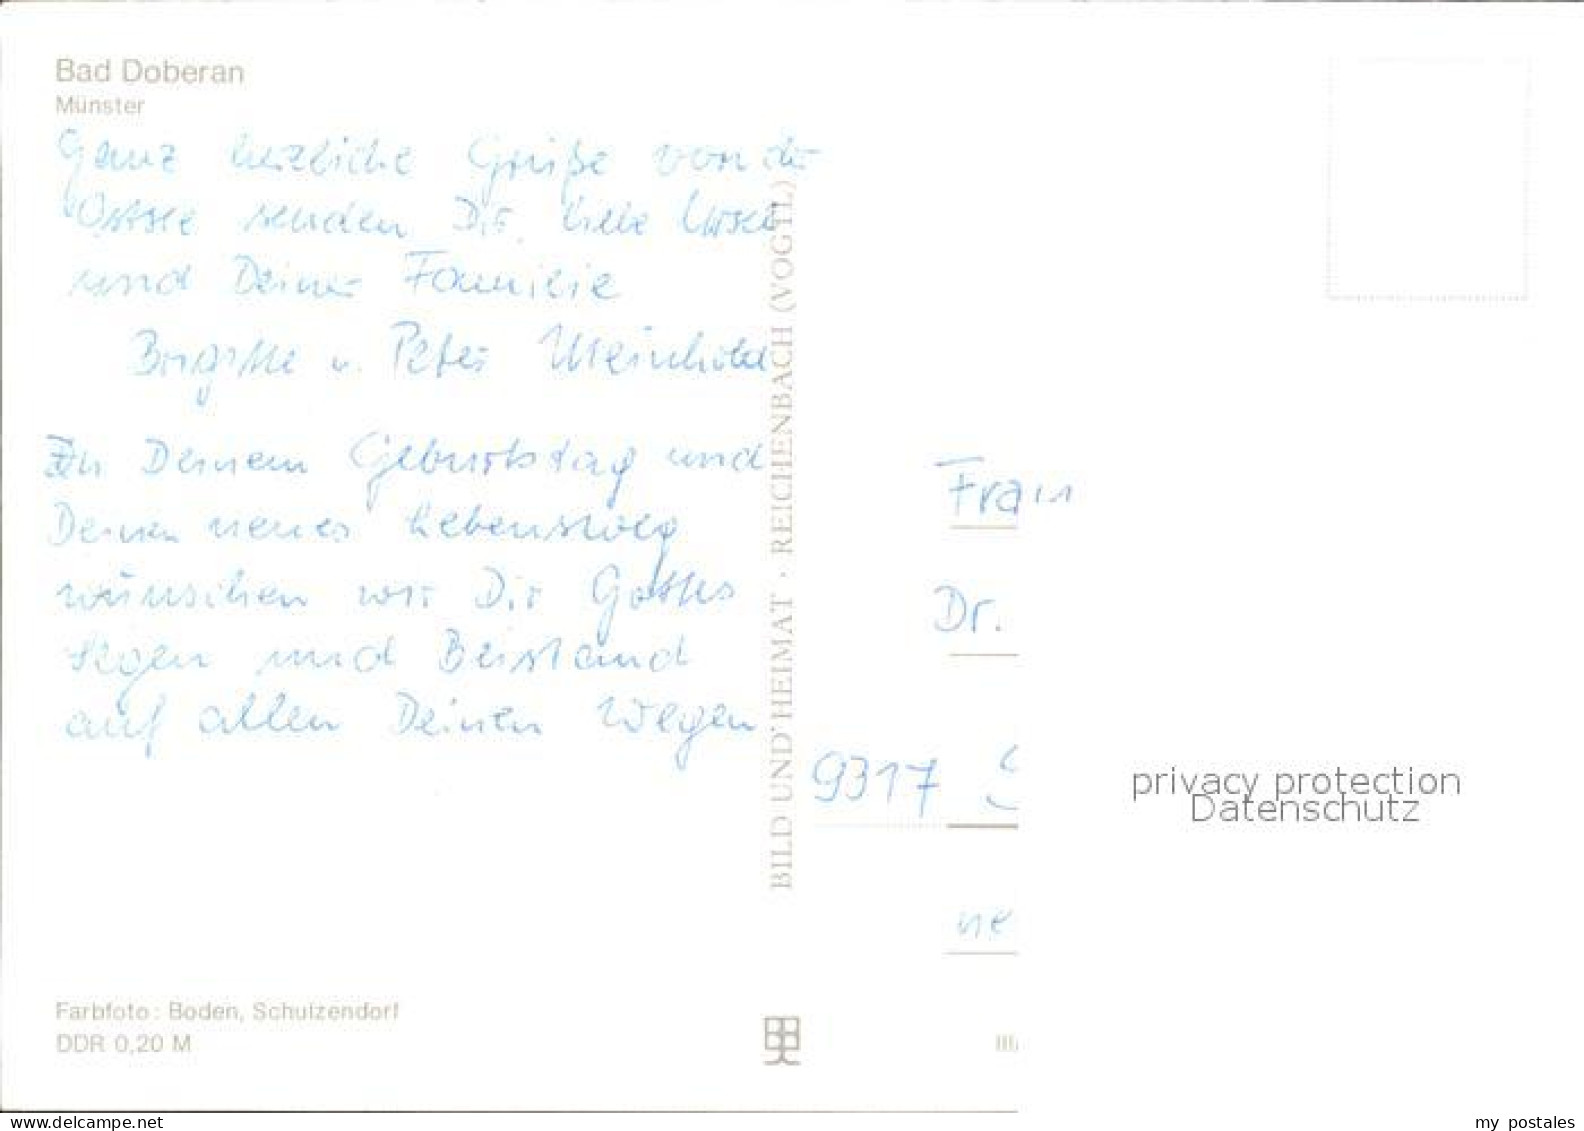 Bad Doberan
Münster
Ganz herzliche Grüße von der
Ostsee senden Dir, liebe Ursel
und Deiner Familie
Birgitte u. Peter Meinhold
Zu Deinem Geburtstag und
Deinen neuen Lebensweg
wünschen wir Dir Gottes
Segen und Beistand
auf allen Deinen Wegen
Farbfoto: Boden, Schulzendorf
DDR 0,20 M
BILD UND HEIMAT · REICHENBACH (VOGTL)
Frau
Dr.
9317
privacy protection
Datenschutz
www.delcampe.net
my_postales